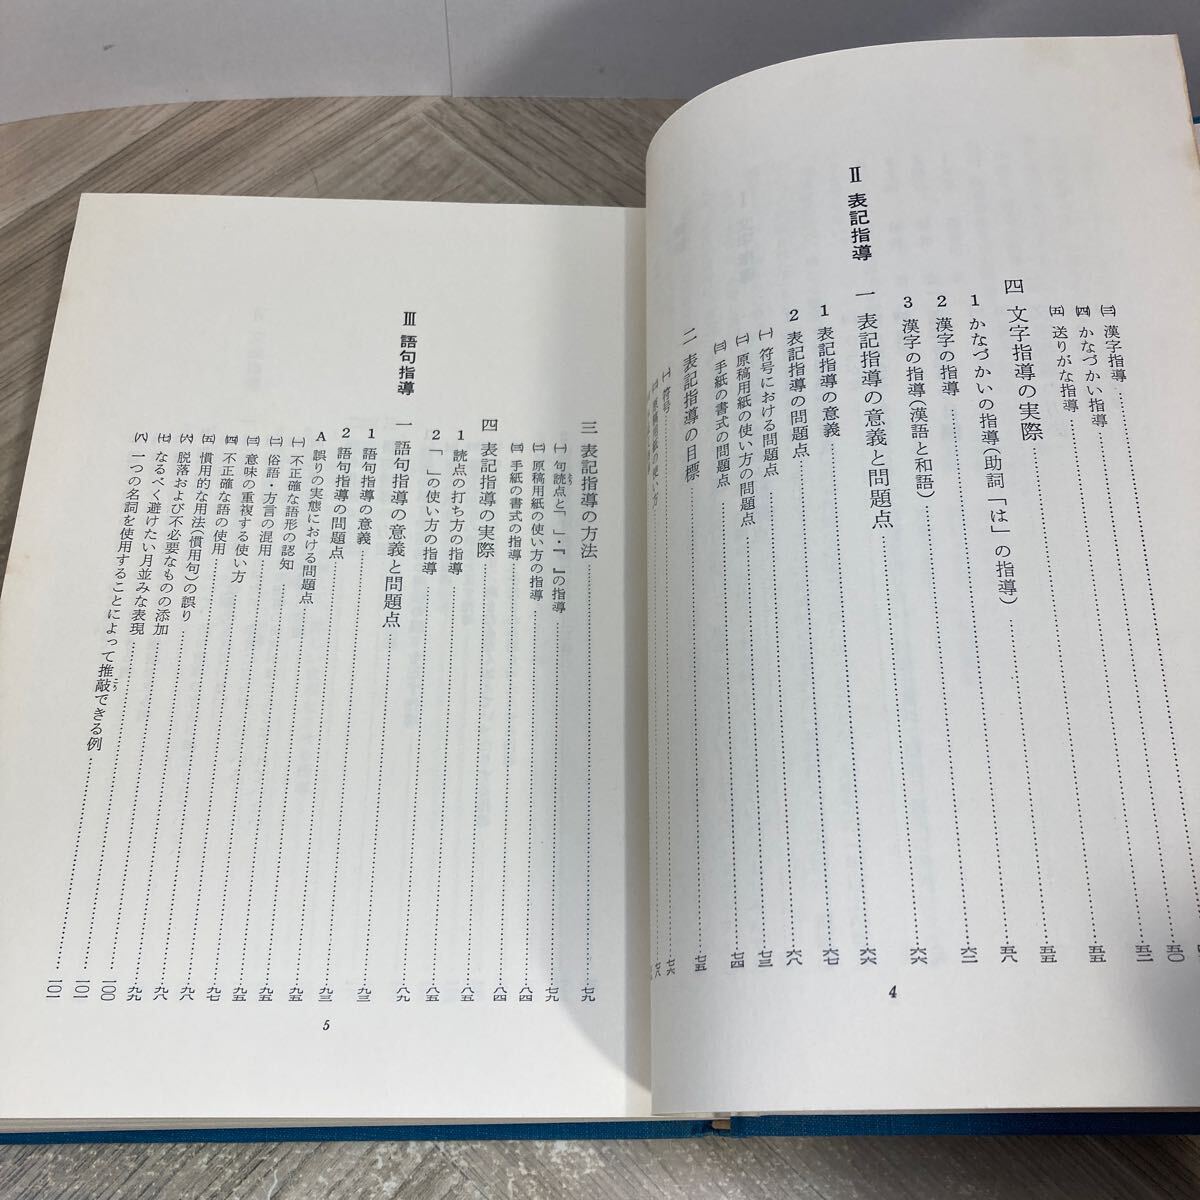 ㈢ 漢字指導
㈣ かなづかい指導……五〇
㈤ 送りがな指導……五二
四 文字指導の実際……五五
1 かなづかいの指導(助詞「は」の指導)……五五
2 漢字の指導……五八
3 漢字の指導(漢語と和語)……六二
Ⅱ 表記指導
一 表記指導の意義と問題点……六六
1 表記指導の意義……六六
2 表記指導の問題点……六七
㈠ 符号における問題点……六八
㈡ 原稿用紙の使い方の問題点……七三
㈢ 手紙の書式の問題点……七四
二 表記指導の目標……七五
㈠ 符号……七六
七八
4
三 表記指導の方法……七九
㈠ 句読点と「 」・『 』の指導……七九
㈡ 原稿用紙の使い方の指導……八四
㈢ 手紙の書式の指導……八四
四 表記指導の実際……八五
1 読点の打ち方の指導……八五
2 「 」の使い方の指導……八九
Ⅲ 語句指導
一 語句指導の意義と問題点……九三
1 語句指導の意義……九三
2 語句指導の問題点……九五
A 誤りの実態における問題点……九五
㈠ 不正確な語形の認知……九五
㈡ 俗語・方言の混用……九七
㈢ 意味の重複する使い方……九八
㈣ 不正確な語の使用……九八
㈤ 慣用的な用法(慣用句)の誤り……九九
㈥ 脱落および不必要なものの添加……一〇〇
㈦ なるべく避けたい月並みな表現……一〇一
㈧ 一つの名詞を使用することによって推敲できる例……一〇一
5